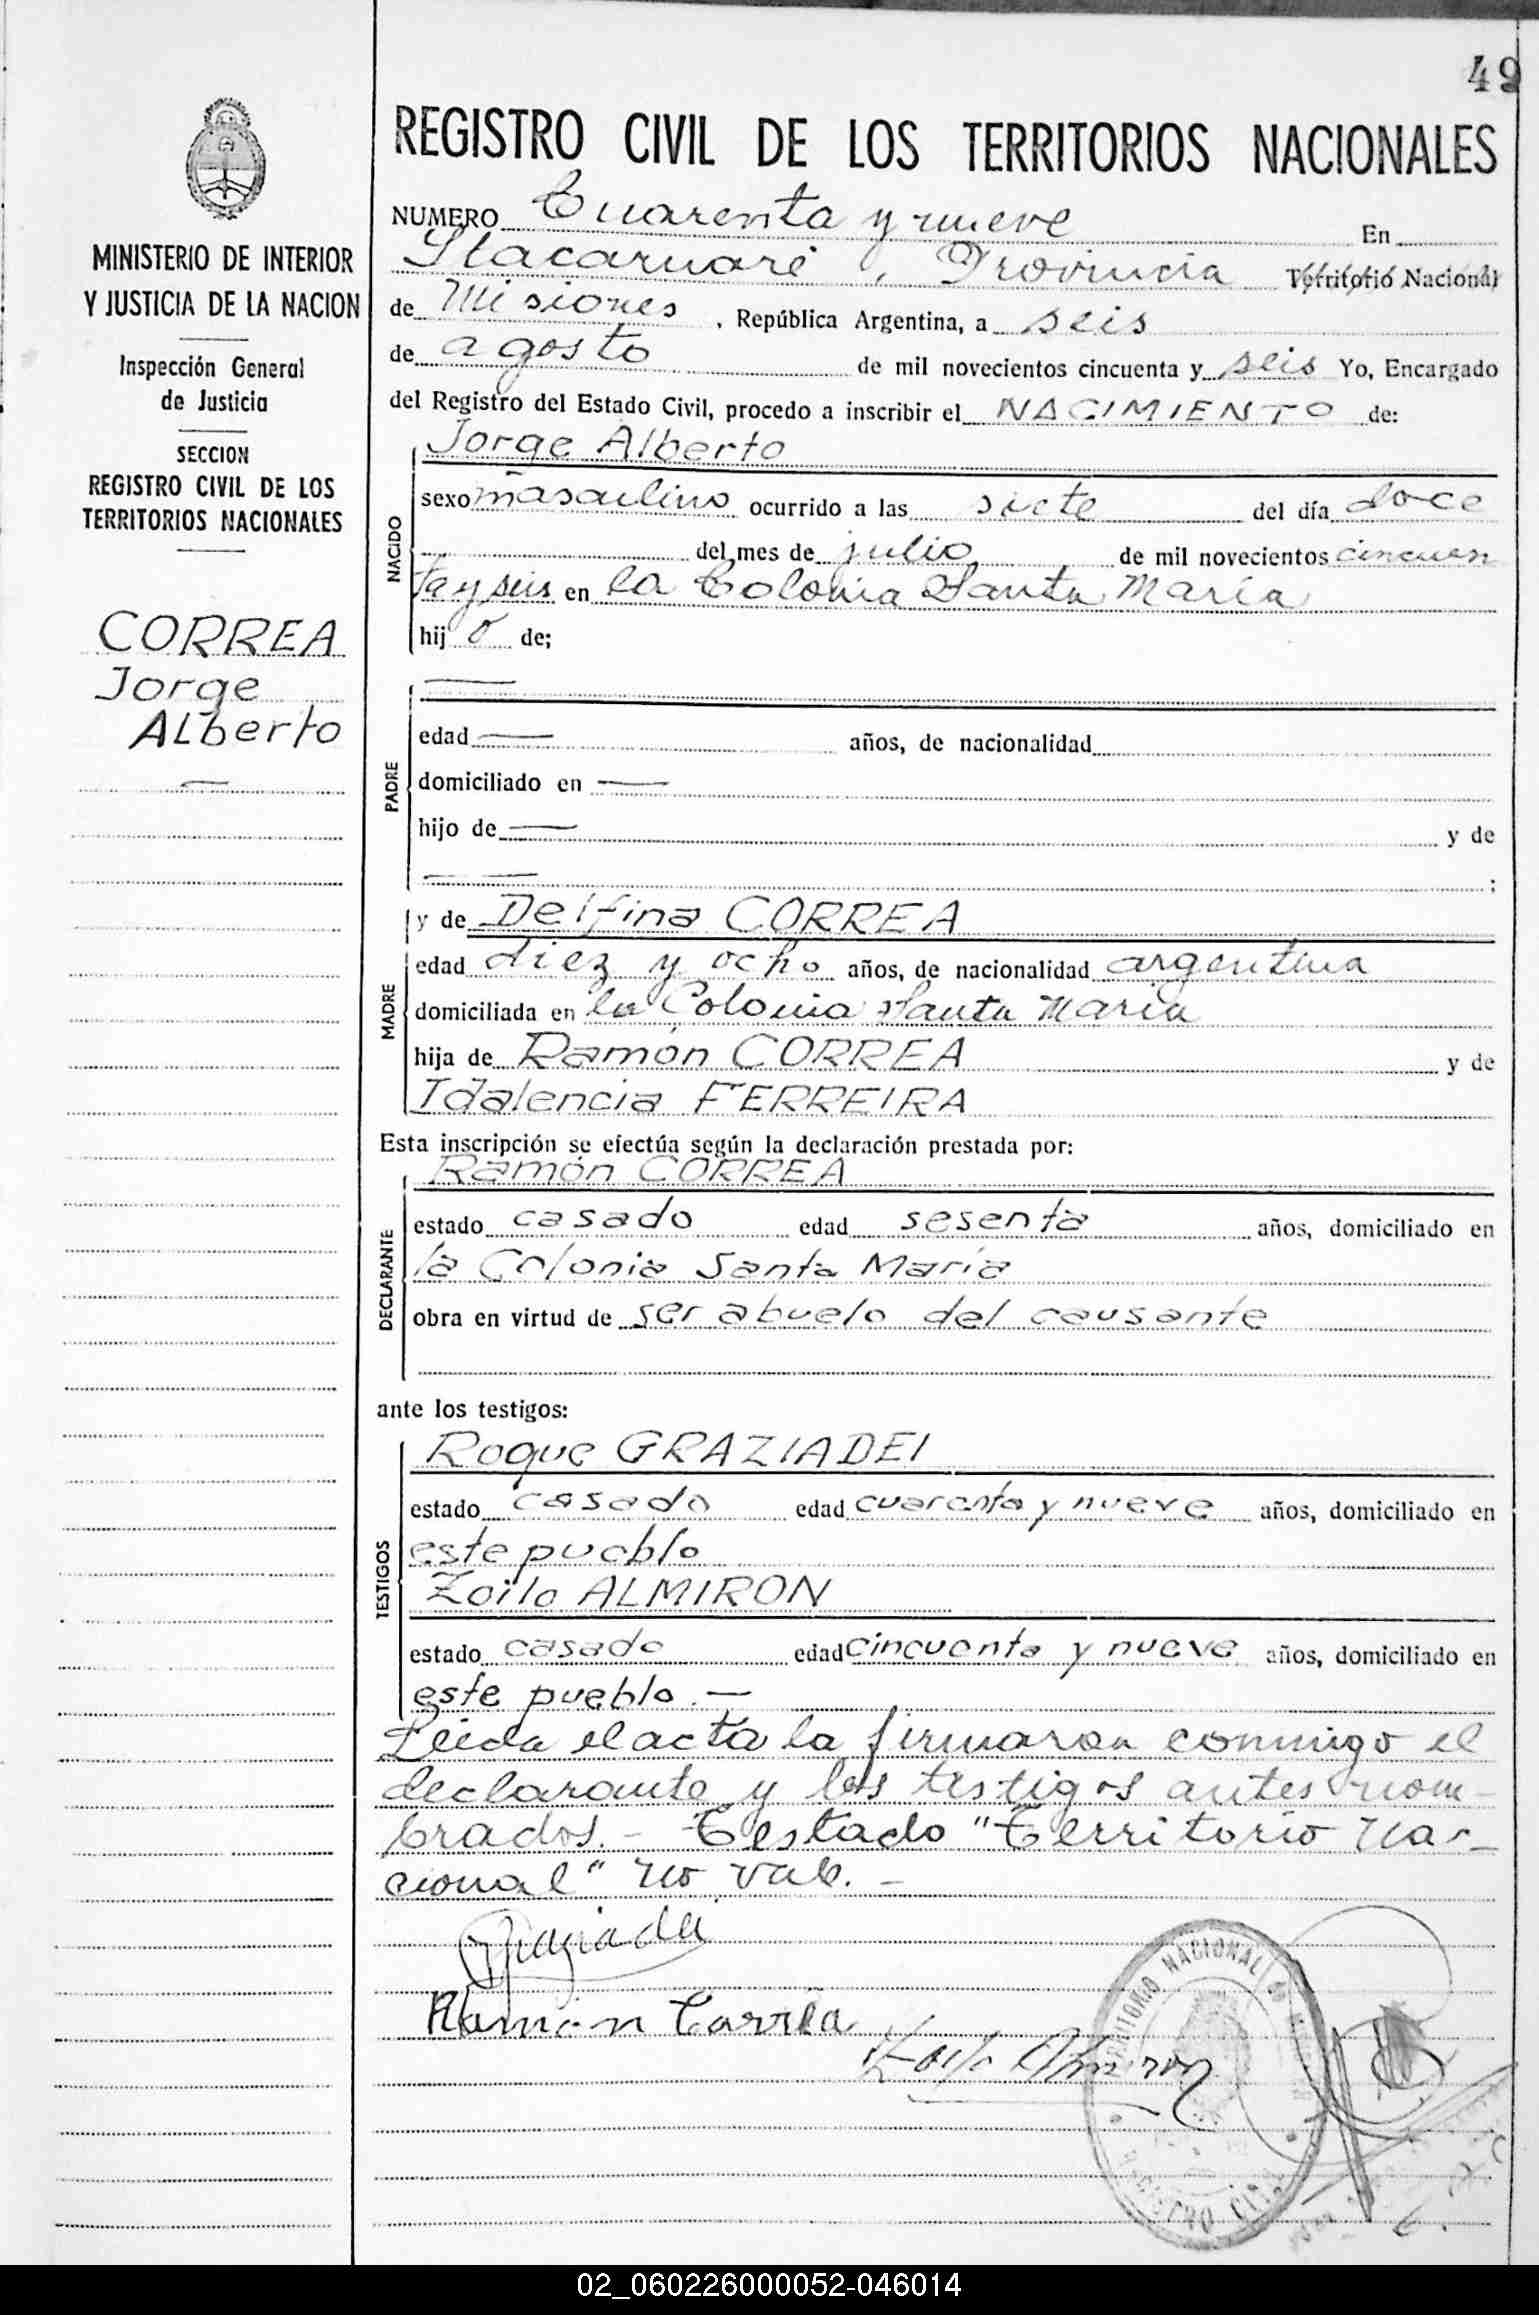 49
REGISTRO CIVIL DE LOS TERRITORIOS NACIONALES
MINISTERIO DE INTERIOR
Y JUSTICIA DE LA NACION
Inspección General
de Justicia
SECCION
REGISTRO CIVIL DE LOS
TERRITORIOS NACIONALES
CORREA
Jorge
ALberto
NUMERO Cuarenta y nueve En
Itacaruaré, Provincia Territorio Nacional
de Misiones, República Argentina, a seis
de agosto de mil novecientos cincuenta y seis Yo, Encargado
del Registro del Estado Civil, procedo a inscribir el NACIMIENTO de:
NACIDO
Jorge Alberto
sexo masculino ocurrido a las siete del día doce
del mes de julio de mil novecientos cincuen
ta y seis en la Colonia Santa María
hij o de;
PADRE
edad — años, de nacionalidad
domiciliado en —
hijo de — y de
— — ;
MADRE
y de Delfina CORREA
edad diez y ocho años, de nacionalidad argentina
domiciliada en la Colonia Santa María
hija de Ramón CORREA y de
Idalencia FERREIRA
Esta inscripción se efectúa según la declaración prestada por:
DECLARANTE
Ramón CORREA
estado casado edad sesenta años, domiciliado en
la Colonia Santa María
obra en virtud de ser abuelo del causante
ante los testigos:
TESTIGOS
Roque GRAZIADEI
estado casado edad cuarenta y nueve años, domiciliado en
este pueblo
Zoilo ALMIRON
estado casado edad cincuenta y nueve años, domiciliado en
este pueblo.—
Leída el acta la firmaron conmigo el
declarante y los testigos antes nom-
brados.- Testado "Territorio Na-
cional" no vale.-
Graziadei
Ramón Correa
Zoilo Almiron
TERRITORIO NACIONAL DE MISIONES
REGISTRO CIVIL
02_060226000052-046014